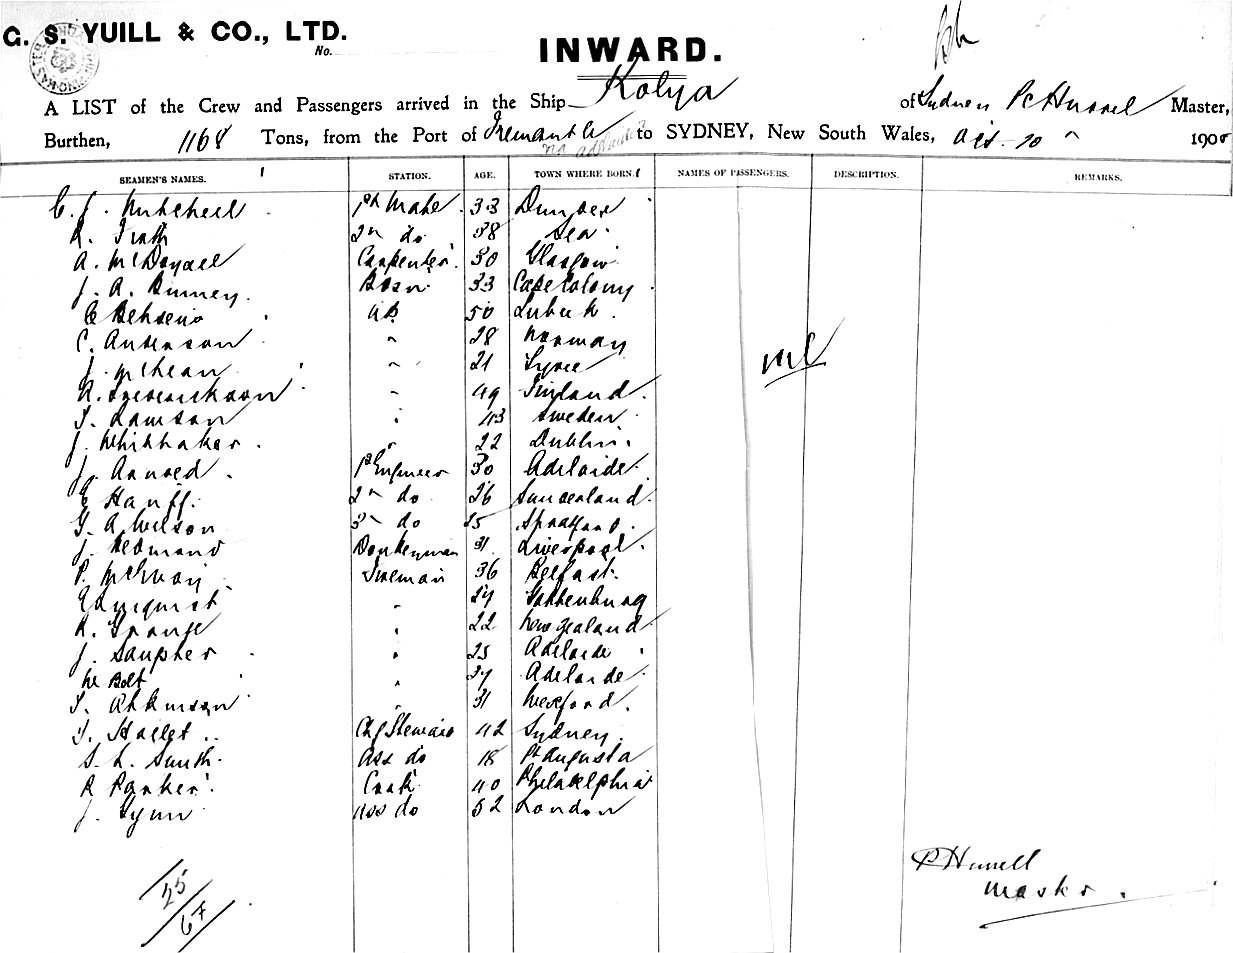 G. S. YUILL & CO., LTD.
No.
INWARD.
A LIST of the Crew and Passengers arrived in the Ship Kolya of Sydney Master,
Burthen, 1168 Tons, from the Port of Fremantle to SYDNEY, New South Wales, 190
SEAMEN'S NAMES. STATION. AGE. TOWN WHERE BORN. NAMES OF PASSENGERS. DESCRIPTION. REMARKS.
C. J. Mitchell 1st Mate 33 Dundee
2nd do 38 Sea
A. McDougall Carpenter 30 Glasgow
J. A. Binney Bosn 33 Cape Colony
Behrens AB 50 Lubeck
C. Anderson " 28 Norway
J. McLean " 21 Tyree
Frederickson " 49 Finland
Lawson " 43 Sweden
J. Whitthaker " 22 Dublin
J. Arnold 1st Engineer 30 Adelaide
Hanff 2nd do 26 Sunderland
G. A. Wilson 3rd do 25
J. Redmond Donkeyman 31 Liverpool
P. McEvoy Fireman 36 Belfast
" 27 Gothenburg
Grange " 22 New Zealand
J. " 25 Adelaide
W Bolt " 27 Adelaide
Atkinson " 31 Wexford
Hallet Chf Steward 42 Sydney
S. L. Smith Ass do 18 Pt Augusta
R Parker Cook 40 Philadelphia
J. Lynn Ass do 52 London
nil
P Hurrell
Master
25
67